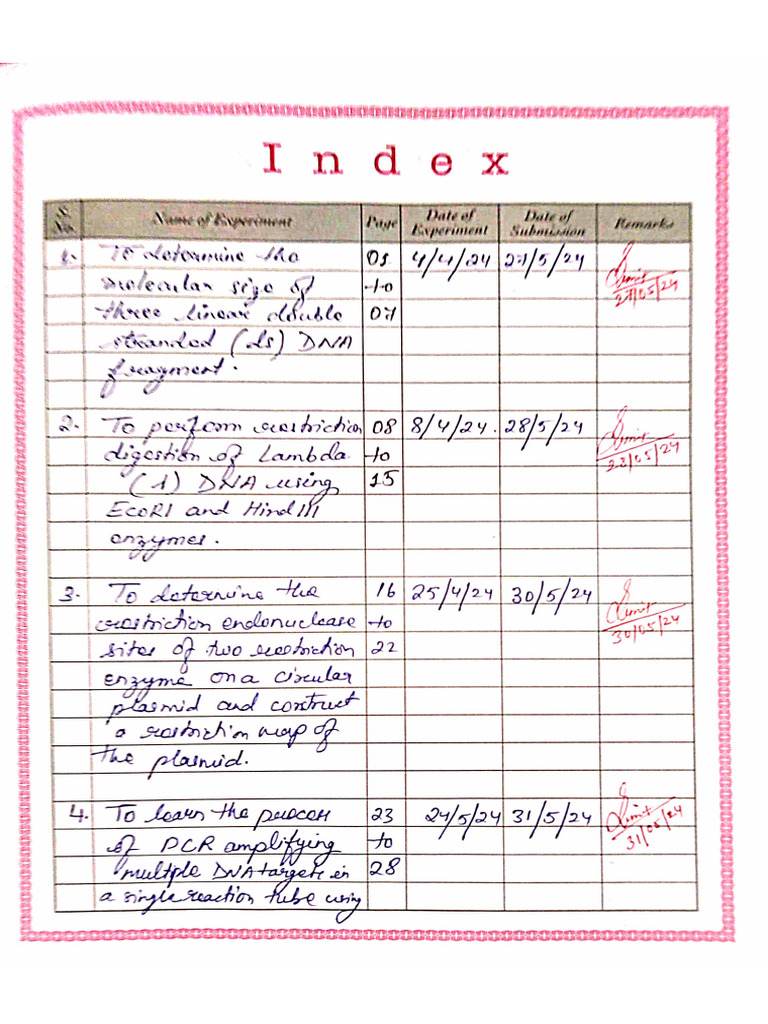 Index
S. No. Name of Experiment Page Date of Experiment Date of Submission Remarks
1. To determine the 01 4/4/24 27/5/24 Sumit
molecular size of to 27/05/24
three linear double 07
stranded (ds) DNA
fragment.
2. To perform restriction 08 8/4/24. 28/5/24 Sumit
digestion of Lambda to 28/05/24
(λ) DNA using 15
EcoRI and Hind III
enzymes.
3. To determine the 16 25/4/24 30/5/24 Sumit
restriction endonuclease to 30/05/24
sites of two restriction 22
enzyme on a circular
plasmid and construct
a restriction map of
the plasmid.
4. To learn the process 23 24/5/24 31/5/24 Sumit
of PCR amplifying to 31/05/24
multiple DNA targets in 28
a single reaction tube using